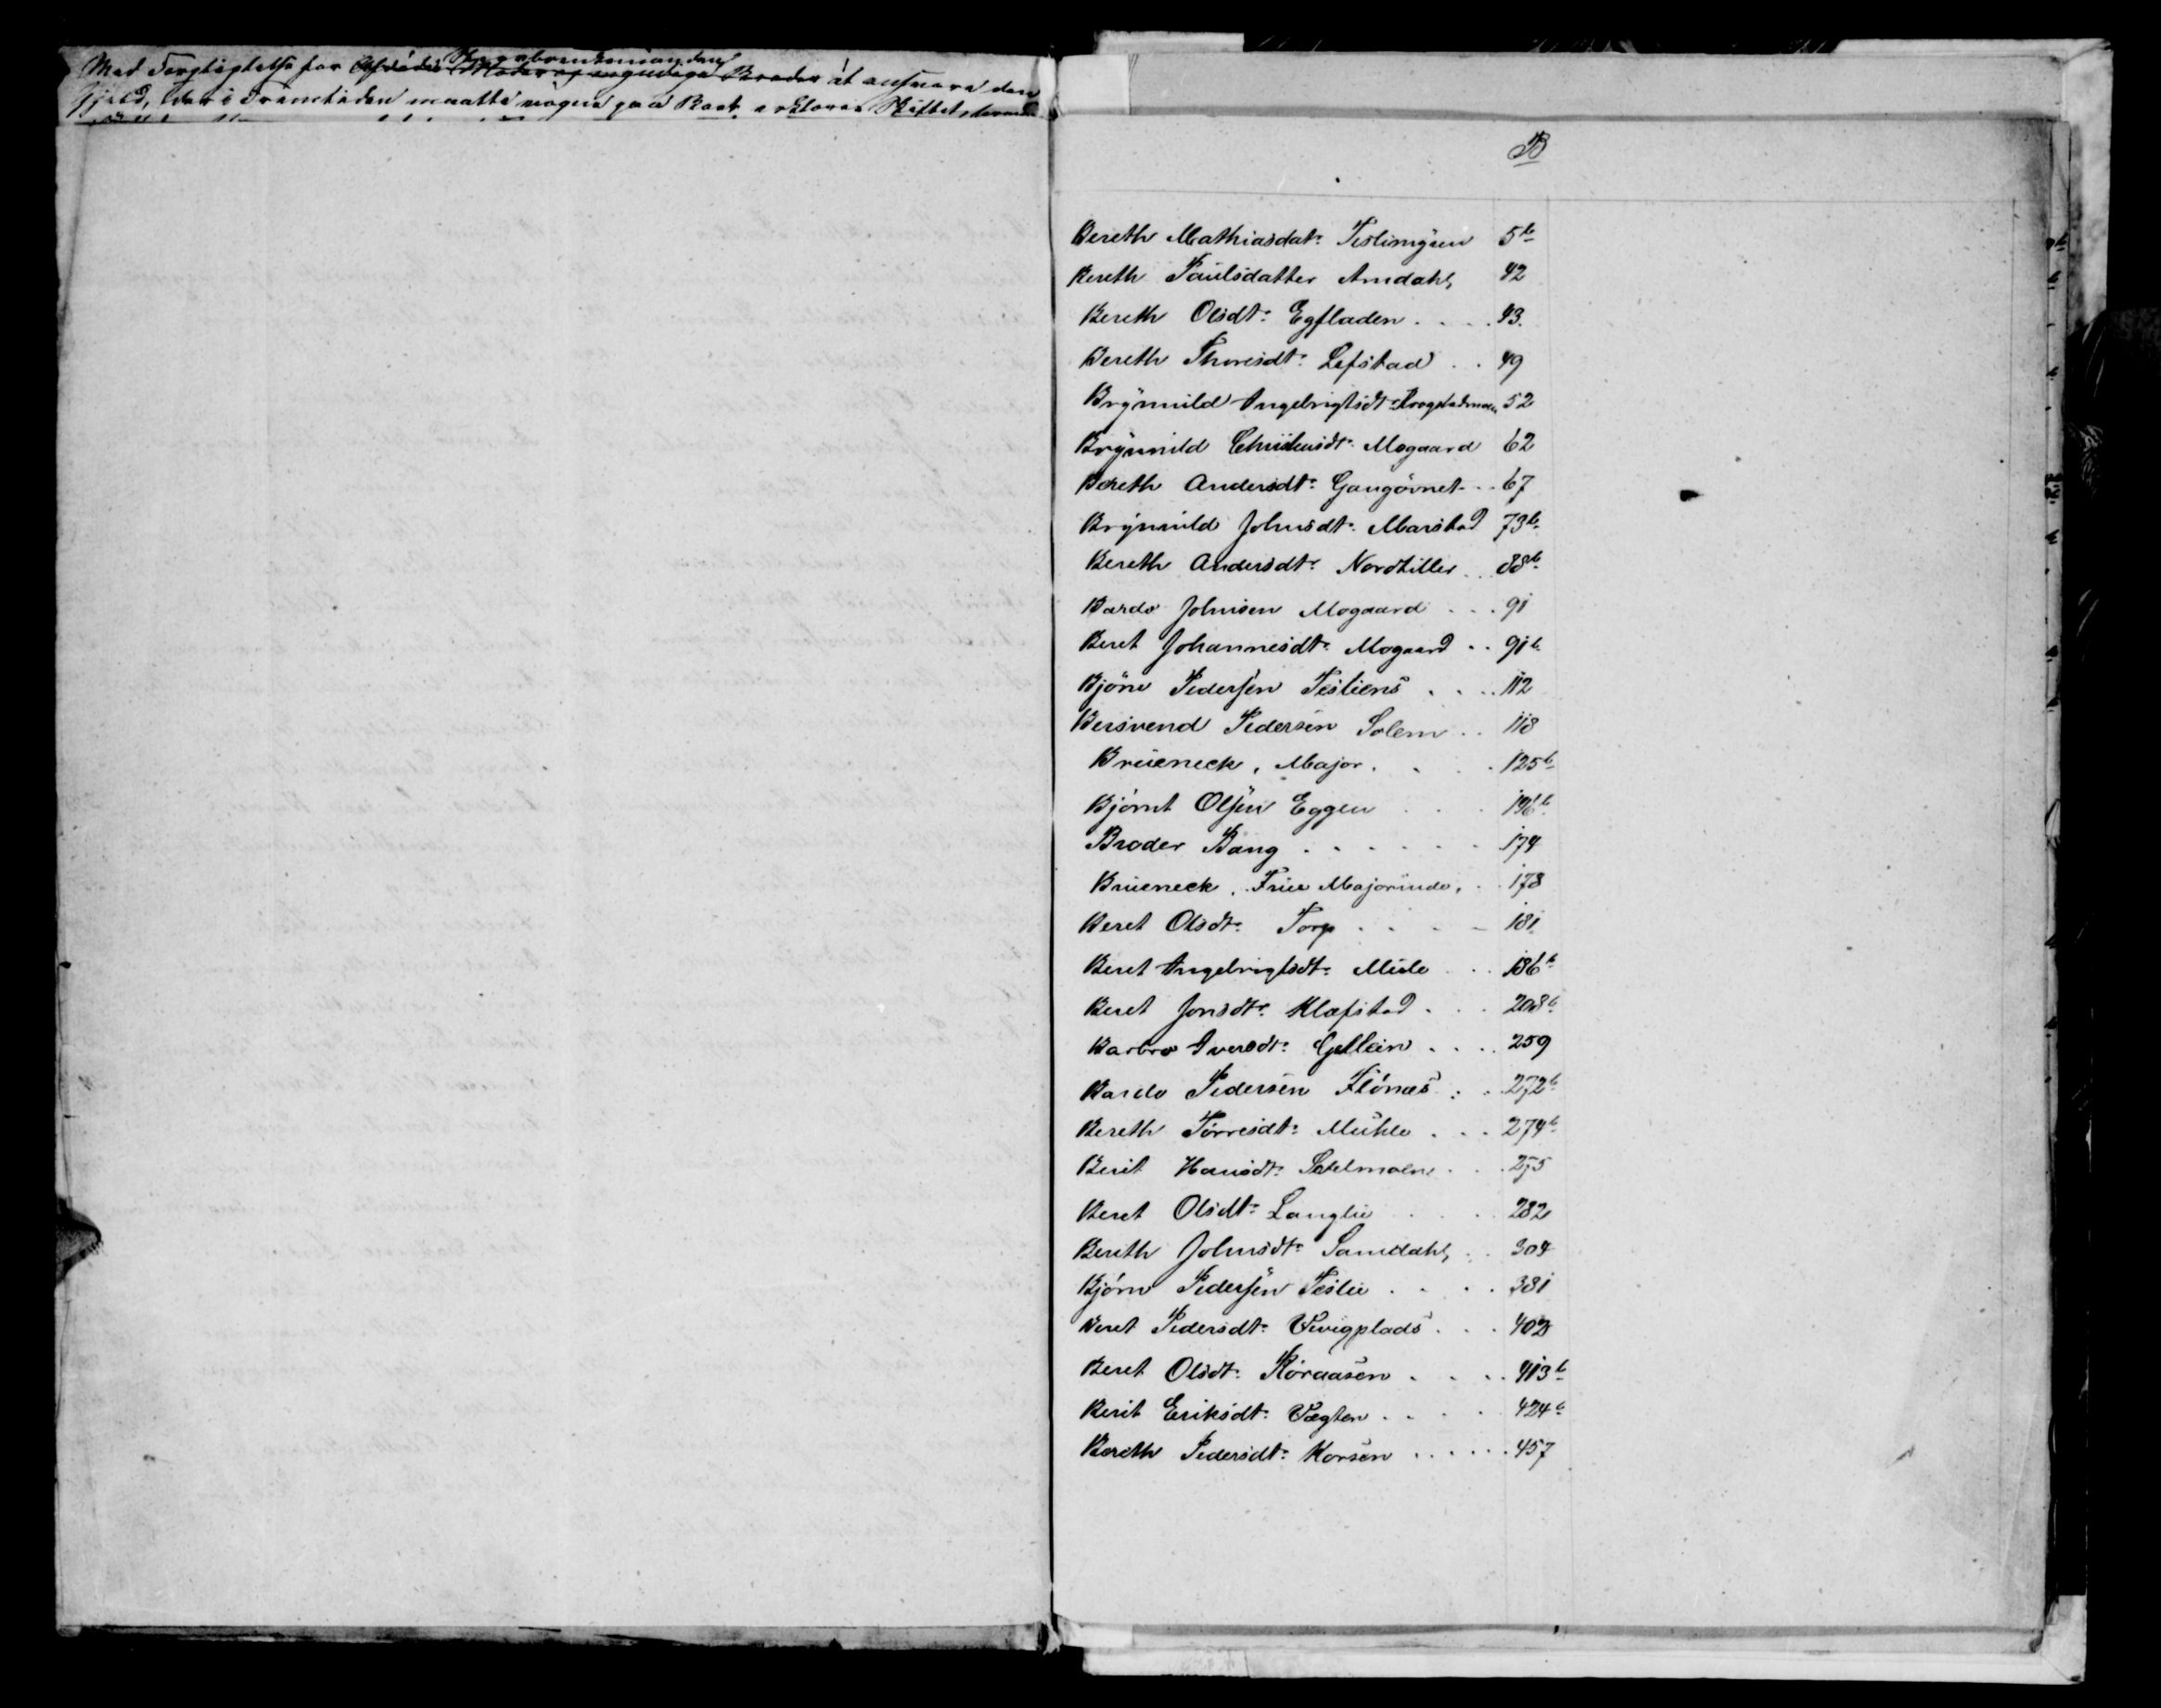 Med Forpligtelse for Afdødes Moder og Broder at ansvare den
Gjæld, der i Fremtiden maatte paa Boet, erklæres Skiftet
B
Bereth Mathiasdat: Teslimÿren 5 b
Bereth Paulsdatter Amdahl, 42
Bereth Olsdt: Egfladen . . . . 43.
Bereth Thoresdt: Lefstad . . 49
Brÿnnild Ingebrigtsdt: Krogstadmoen 52
Brÿnnild Christensdt: Mogaard 62
Bereth Andersdt: Gangövnet . . 67
Brÿnnild Johnsdt: Marstad 73 b
Bereth Andersdt: Nordtiller . . 88 b
Bardo Johnsen Mogaard . . . 91
Beret Johannesdt: Mogaard . . 91 b
Bjöne Pedersen Tesliens . . . 112
Bersvend Pedersen Solem . . 118
Brüeneck, Major . . . 125 b
Bjørnt Olsen Eggen . . . 136 b
Broder Bang . . . . . . 174
Brüeneck, Frue Majorinde, . 178
Beret Olsdt: Torp . . . . 181
Beret Ingebrigtsdt: Mule . . 186 b
Beret Jonsdt: Klæfstad . . . 208 b
Barbro Iversdt: Gellein . . . 259
Bardo Pedersen Flönæs . . 272 b
Bereth Törresdt: Muhle . . . 274 b
Berit Hansdt: Sætelmoen . . . 275
Beret Olsdt: Langlie . . . 282
Berith Johnsdt: Samdahl, . . 304
Bjørn Pedersen Teslie . . . . 381
Beret Pedersdt: Vevigplads . . . 402
Beret Olsdt: Røraasen . . . . 413 b
Berit Eriksdt: Vægten . . . . 424 b
Bereth Pedersdt: Korsen . . . . . . 457